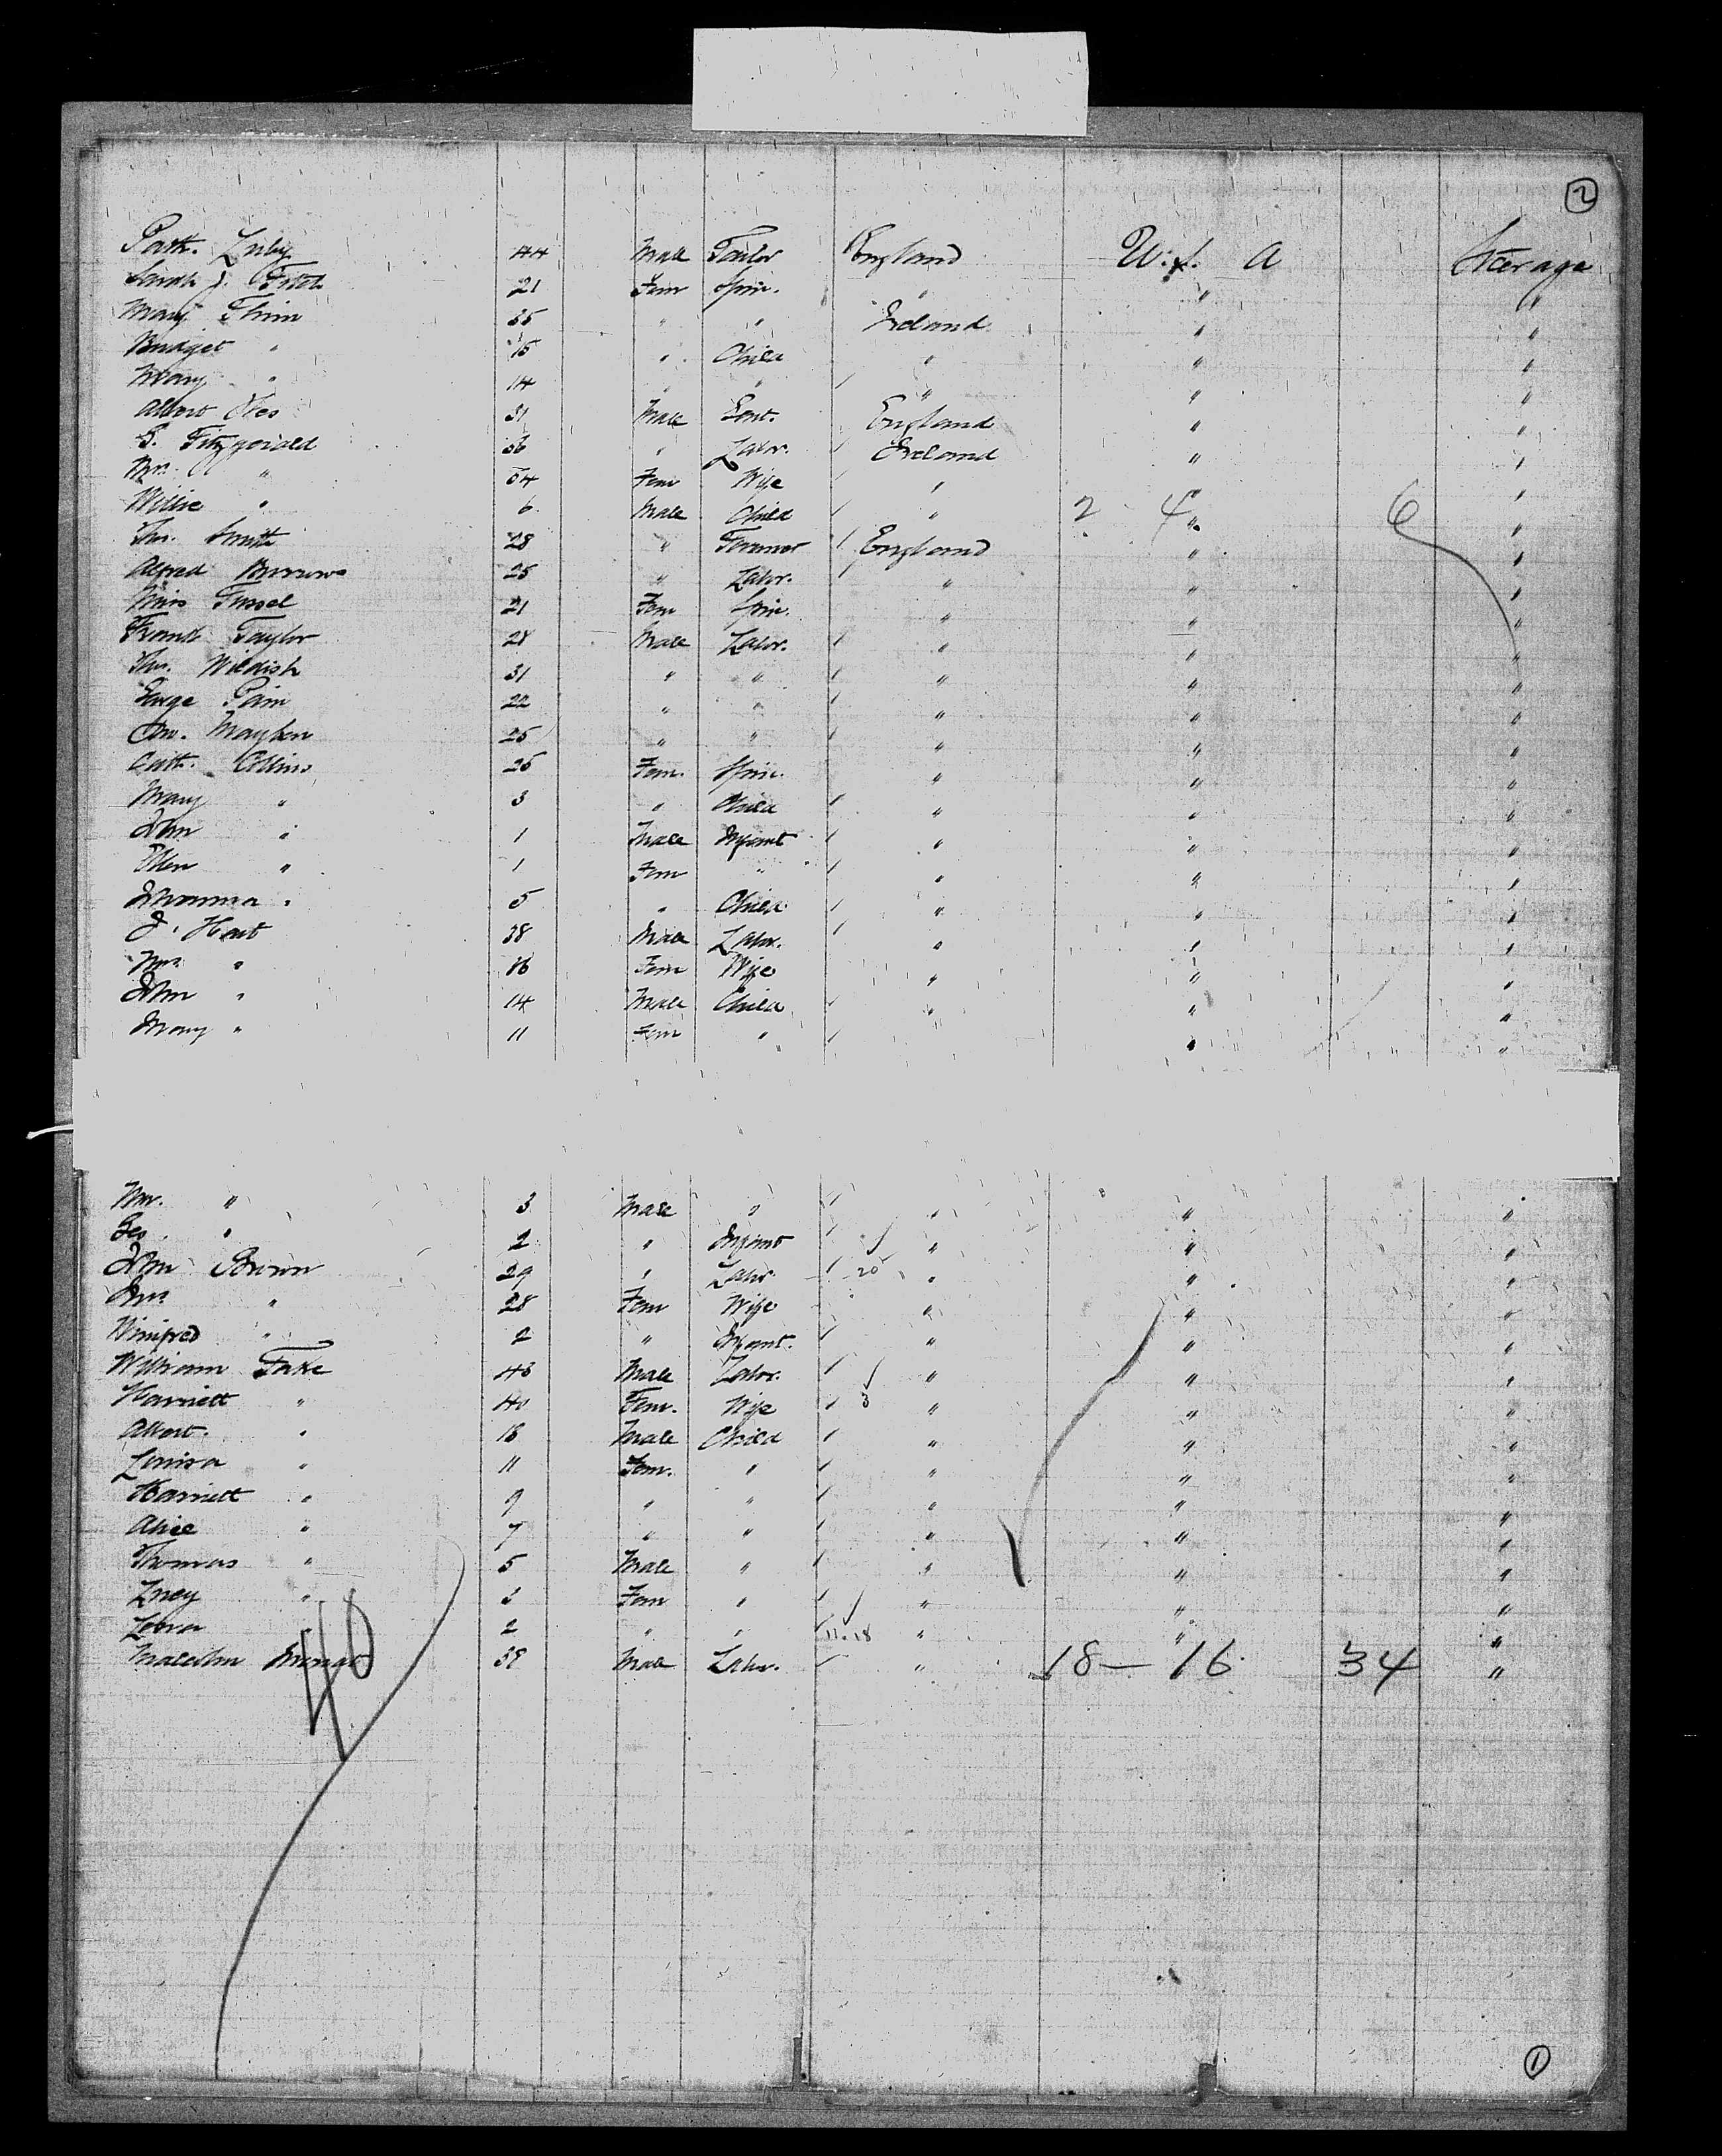 2
Patk. 44 Male Tailor England U.S. A Steerage
Sarah J. Fitch 21 Fem Spin. " " "
Mary Flinn 35 " " Ireland " "
Bridget " 15 " Child " " "
Mary " 14 " " " " "
Albert 31 Male Gent. England " "
G. Fitzgerald 36 " Labr. Ireland " "
Mrs. " 34 Fem Wife " " "
Willie " 6 Male Child " 2 4 " 6 "
Thos. Smith 28 " Farmer England " "
Alfred Burrows 25 " Labr. " " "
Miss Fussel 21 Fem Spin. " " "
Frank Taylor 28 Male Labr. " " "
Thos. Wildish 31 " " " " "
George Pain 22 " " " " "
25 " " " " "
Cath. Collins 25 Fem. Spin. " " "
Mary " 3 " Child " " "
John " 1 Male Infant " " "
Ellen " 1 Fem " " " "
" 5 " Child " " "
J. Hart 38 Male Labr. " " "
Mrs " 36 Fem Wife " " "
John " 14 Male Child " " "
Mary " 11 Fem " " " "
Wm. " 3 Male " " " "
Geo. " 2 " Infant " " "
John Brown 29 " Labr. 20 " " "
Mrs " 28 Fem Wife " " "
Winifred " 2 " Infant. " " "
William Take 43 Male Labr. " " "
Harriett " 40 Fem. Wife 3 " " "
Albert. " 16 Male Child " " "
Louisa " 11 Fem. " " " "
Harriett " 9 " " " " "
Alice " 7 " " " " "
Thomas " 5 Male " " " "
Lucy " 3 Fem " " " "
2 " " 11.18 " " "
Malcolm 39 Male Labr. " 18 — 16 34 "
40
1